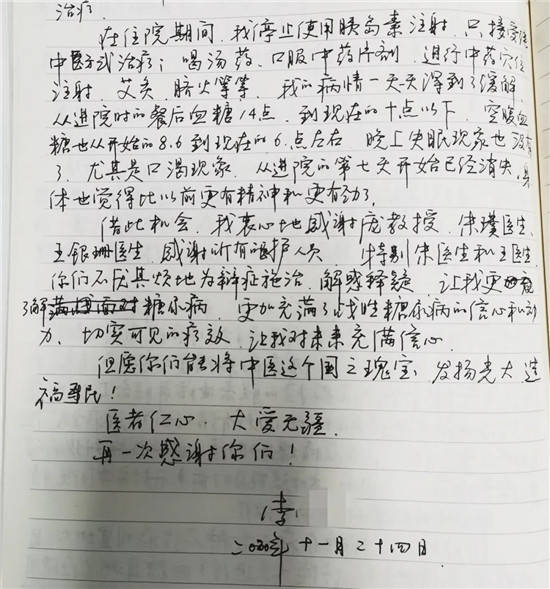 治疗：
在住院期间，我停止使用胰岛素注射，只接受住
中医方式治疗；喝汤药、口服中药片剂、进行中药穴位
注射、艾灸、脐火等等，我的病情一天天得到了缓解，
从进院时的餐后血糖14点，到现在的十点以下，空腹血
糖也从开始的8.6到现在的6.点左右，晚上失眠现象也没有
了，尤其是口渴现象，从进院的第七天开始已经消失，身
体也觉得比以前更有精神和更有劲了。
借此机会，我衷心地感谢庞教授，朱璞医生、
王银珊医生，感谢所有医护人员，特别朱医生和王医生，
你们不厌其烦地为辩症施治，解惑释疑，让我更
了解糖尿病，更加充满了战胜糖尿病的信心和动
力，切实可见的疗效，让我对未来充满信心，
但愿你们能将中医这个国之瑰宝，发扬光大造
福民！
医者仁心，大爱无疆，
再一次感谢你们！
李
二0二0年十一月二十四日